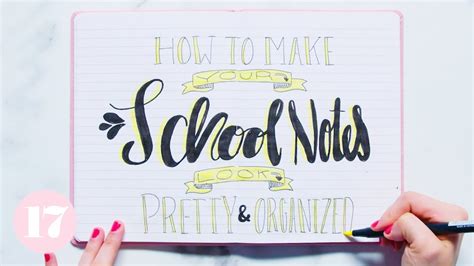 HOW TO MAKE
YOUR
School Notes
LOOK
PRETTY & ORGANIZED
17